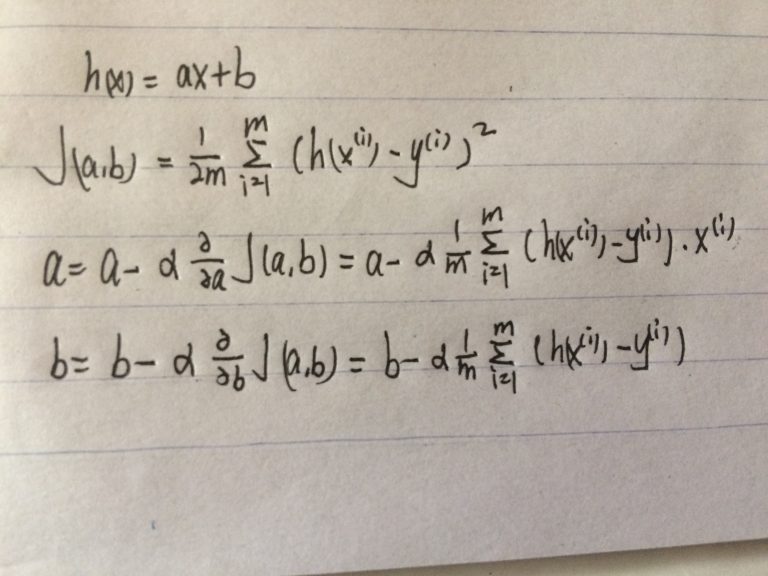 h(x) = ax+b
J(a,b) = \frac{1}{2m} \sum_{i=1}^{m} (h(x^{(i)}) - y^{(i)})^2
a = a - α \frac{∂}{∂a} J(a,b) = a - α \frac{1}{m} \sum_{i=1}^{m} (h(x^{(i)}) - y^{(i)}) · x^{(i)}
b = b - α \frac{∂}{∂b} J(a,b) = b - α \frac{1}{m} \sum_{i=1}^{m} (h(x^{(i)}) - y^{(i)})